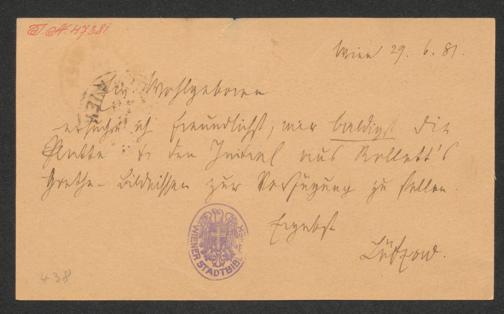 I.N. 47381
Wien 29. 6. 81.
Ew. Wohlgeboren
ersuche ich freundlichst, mir baldigst die
Platte zu den Initial aus Rollett's
Goethe-Bildnissen zur Verfügung zu stellen.
Ergebst
Lützow.
WIEN
WIENER STADTBIBL
438